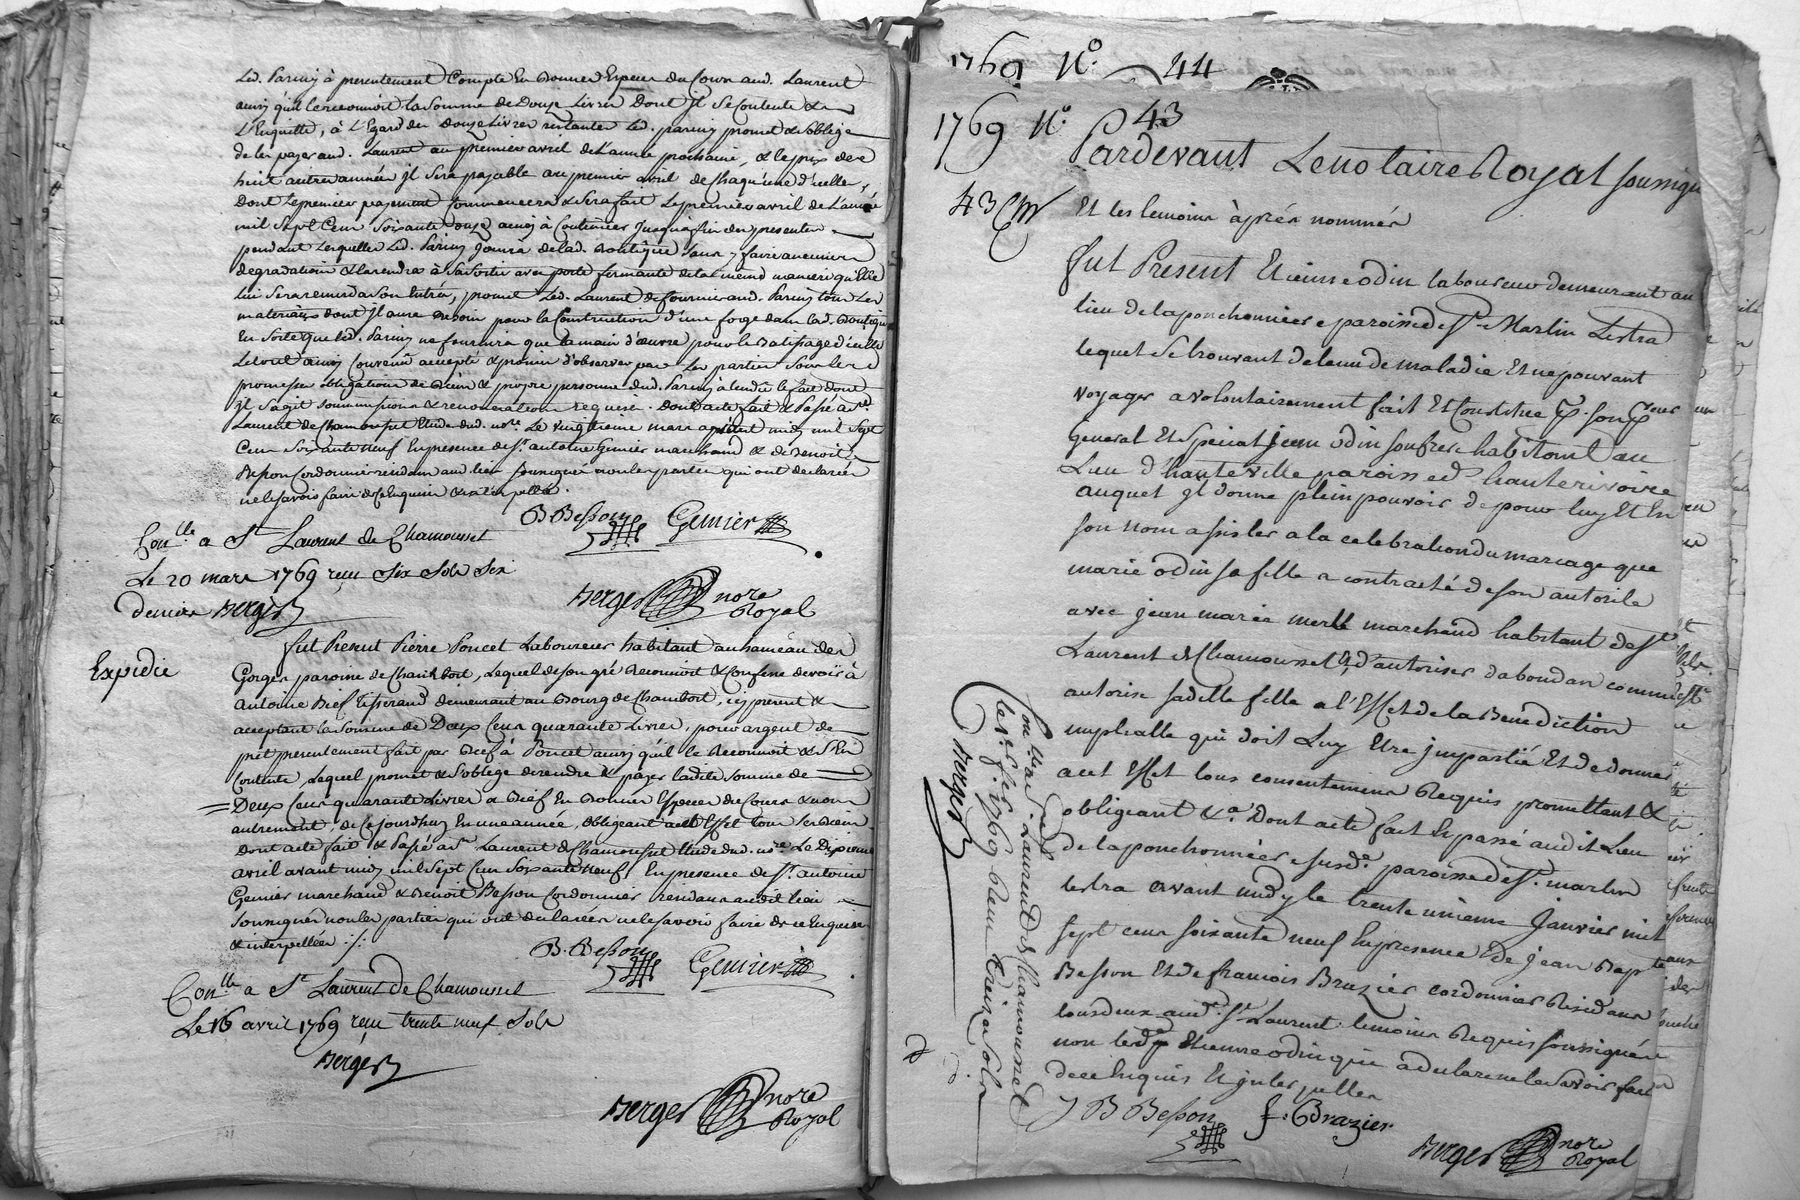 Led. Parmy à presentement Compté En Bonnes Espèces du Cours aud. Laurent
ainsy qu'il le reconnoit la somme de Douze Livres Dont jl se Contente &
L'Enquitte, à L'Egard des Douze Livres restantes Led. parmy promet & s'oblige
de les payer aud. Laurent au premier avril de L'année prochaine, & le prix des
huit autres années jl sera payable au premier avril de Chaqu'une d'icelles,
Dont Le premier payement Commencera & sera fait Le premier avril de L'année
mil sept Cent soixante onze ainsy à Continuer jusqu'à fin des presentes
pendant Lesquelles Led. Parmy jouira de lad. Boutique sans y faire aucunes
degradations & la rendra à sa sortie avec porte fermante de la meme maniere qu'Elle
lui sera remise à son Entrée, promet Led. Laurent de fournir aud. Parmy tous Les
materiaux dont jl aura Besoin pour la Construction d'une forge dans lad. Boutique
En sorte que led. Parmy ne fournira que la main d'œuvre pour le Batissage d'icelle
Le tout ainsy Convenu accepté & promis d'observer par Les parties sous leurs
promesses obligations de Biens & propre personne dud. Parmy attendu le fait dont
jl s'agit soumissions & renonciations requises. Dont acte fait & Passé à St
Laurent de Chamousset Etude dud. nore. Le vingtieme mars apres midy mil sept
Cent soixante neuf En presence de Sr. antoine Genier marchand & de Benoit
Besson Cordonnier residans aud. lieu soussignés non les parties qui ont declarées
ne le savoir faire de ce Enquises & interpellées.
B. Besson Genier
Conlle a St Laurent de Chamousset
Le 20 mars 1769 reçu Six Sols Six
deniers Berger
Berger nore
Royal
Expedié
fut Present Pierre Poncet Laboureur habitant au hameau des
Gorges paroisse de Chambost, Lequel de son gré Reconnoit & Confesse devoir à
Antoine Bief Tisserand demeurant au Bourg de Chambost, icy present &
acceptant la somme de Deux Cens quarante Livres, pour argent de
prêt presentement fait par Bief à Poncet ainsy qu'il le Reconnoit & s'En
Contente, Lequel promet & s'oblige de rendre & payer ladite somme de
Deux Cens quarante Livres a Bief En Bonnes Especes du Cours & non
autrement, de Ce jourdhuy En une année, obligeant a cet Effet tous ses Biens
Dont acte fait & Passé à St Laurent de Chamousset Etude dud. nore Le Dixieme
avril avant midy mil sept Cent Soixante neuf, En presence de Sr. antoine
Genier marchand & Benoit Besson Cordonnier residans audit lieu
soussignés non les parties qui ont declarées ne le savoir faire de ce Enquises
& interpellées ./.
B. Besson Genier
Conlle a St Laurent de Chamousset
Le 16 avril 1769 reçu trente neuf Sols
Berger
Berger nore
Royal
1769 No. 44
1769 No. 43
Pardevant Le notaire Royal soussigné
43
Et les temoins après nommés
fut Present Etienne odin laboureur demeurant au
lieu de la ponchonniere paroisse de St. Martin Lestra
lequel se trouvant detenu de maladie Et ne pouvant
voyager a volontairement fait Et Constitué pr. son preur
general Et special jean odin son frere habitant au
Lieu d'hauteville paroisse d'hauterivoire
auquel jl donne plein pouvoir de pour luy Et En
son nom assister a la celebration du mariage que
marie odin sa fille a contracté de son autorité
avec jean marie merle marchand habitant de St
Laurent de Chamousset, & d'autoriser d'abondant comme il
autorise sadite fille a l'Effet de la Benediction
nuptialle qui doit Luy Etre jmpartie Et de donner
a cet Effet tous consentemens Requis promettant &
obligeant &a. Dont acte fait Et passé audit Lieu
de la ponchonniere susde. paroisse de St. martin
lestra avant midy le trente unieme Janvier mil
sept cens soixante neuf En presence de jean Bapte
Besson Et de francois Brazier cordonniers Residans
tous deux aud. St. Laurent temoins Requis soussignés
non led. Etienne odin qui a declaré ne le savoir faire
de ce Enquis Et jnterpellé
J B Besson f. Brazier
Berger nore
Royal
Conlle a St. Laurent de Chamousset
le 1er fer 1769 reçu treize sols
Berger